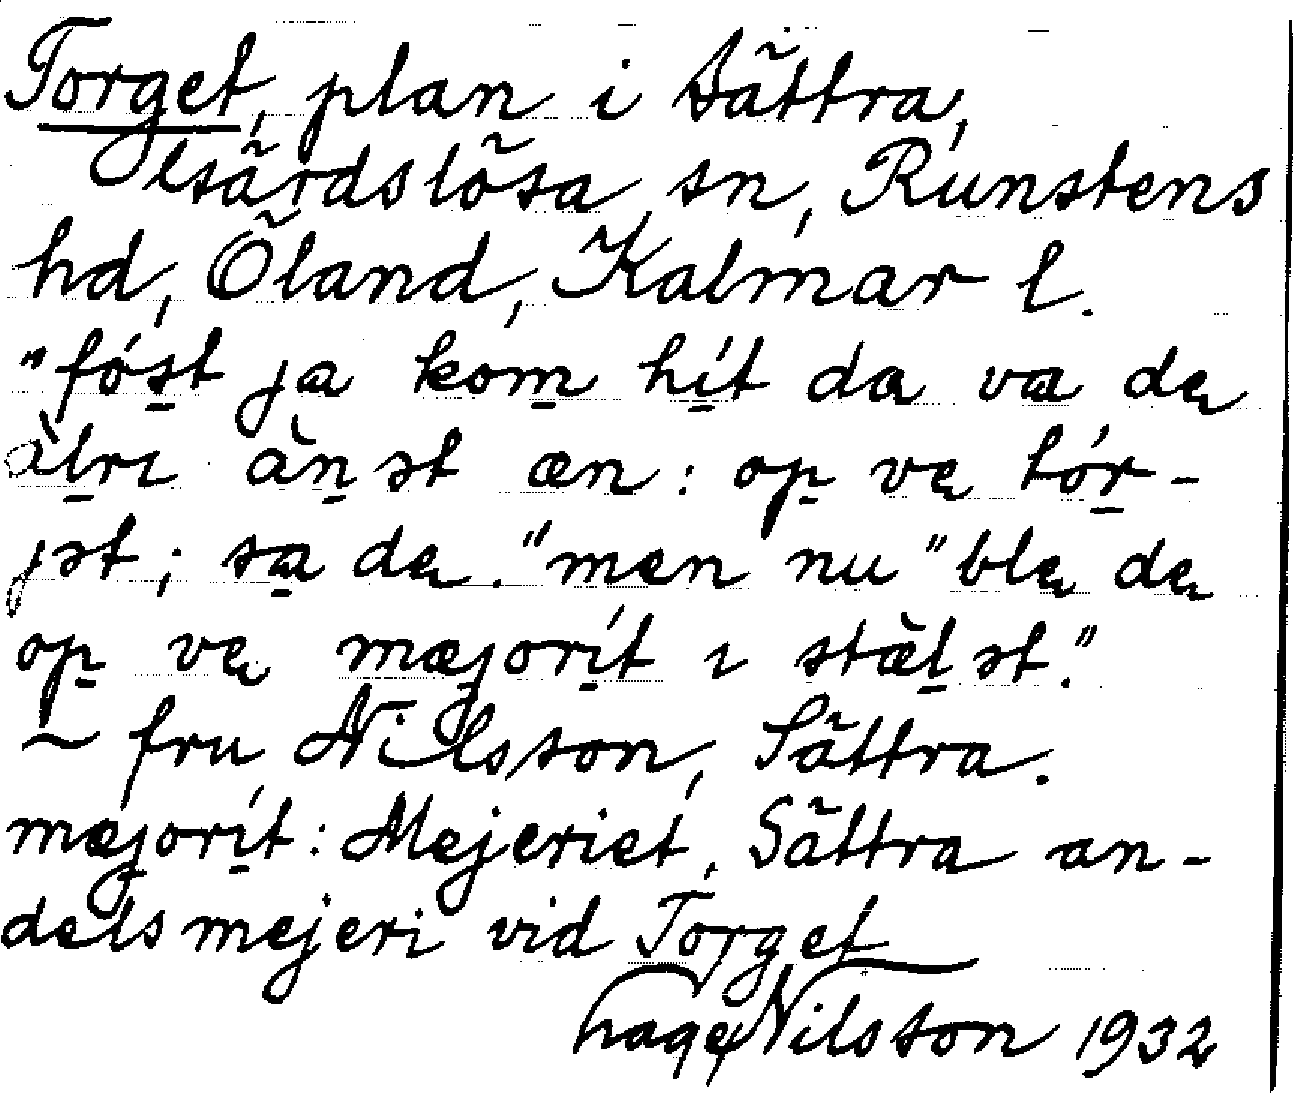 Torget, plan i Sättra,
Gärdslösa sn, Runstens
hd, Öland, Kalmar l.
"fóst ja kom hít da va dę
àlrı ànət æn: op vę tór-
jət; sa dę. "men nu "blę dę
op vę mæjorít ı stæ̀lət."
– fru Nilsson, Sättra.
mæjorít: Mejeriet, Sättra an-
delsmejeri vid Torget
Nilsson 1932